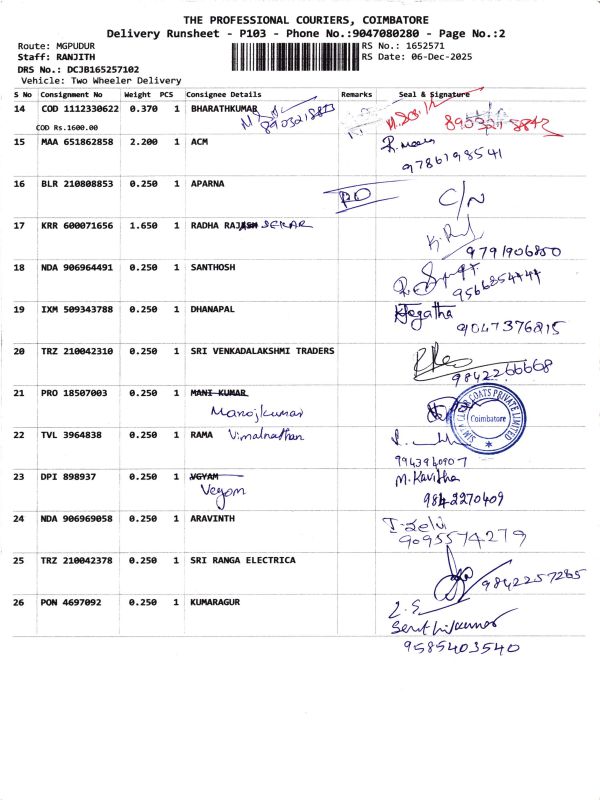 THE PROFESSIONAL COURIERS, COIMBATORE
Delivery Runsheet - P103 - Phone No.:9047080280 - Page No.:2
Route: MGPUDUR RS No.: 1652571
Staff: RANJITH RS Date: 06-Dec-2025
DRS No.: DCJB165257102
Vehicle: Two Wheeler Delivery
S No Consignment No Weight PCS Consignee Details Remarks Seal & Signature
14 COD 1112330622 0.370 1 BHARATHKUMAR 8903218843
COD Rs.1600.00
15 MAA 651862858 2.200 1 ACM
9786198541
16 BLR 210808853 0.250 1 APARNA C/N
17 KRR 600071656 1.650 1 RADHA RAJ SEKAR
9791906850
18 NDA 906964491 0.250 1 SANTHOSH
9566854444
19 IXM 509343788 0.250 1 DHANAPAL Jegatha
9047376815
20 TRZ 210042310 0.250 1 SRI VENKADALAKSHMI TRADERS
9842266668
21 PRO 18507003 0.250 1 MANI KUMAR
Manojkumar Coimbatore
22 TVL 3964838 0.250 1 RAMA Vimalnathan
9943940907
23 DPI 898937 0.250 1 VGYAM M. Kavitha
Vegam 9842270409
24 NDA 906969058 0.250 1 ARAVINTH
9095574279
25 TRZ 210042378 0.250 1 SRI RANGA ELECTRICA
9842257285
26 PON 4697092 0.250 1 KUMARAGUR
Senthilkumar
9585403540